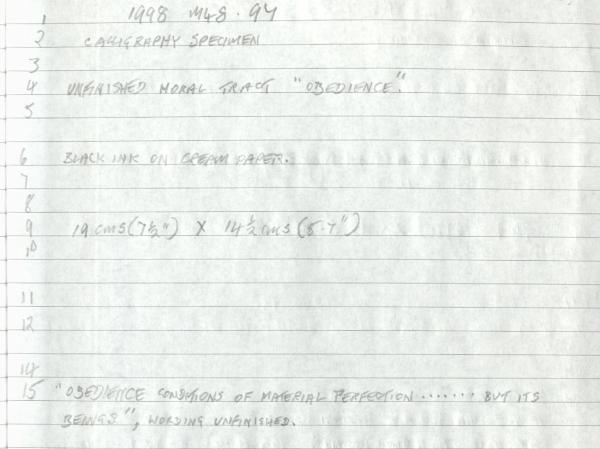 1 1998 M48.94
2 CALLIGRAPHY SPECIMEN
3
4 UNFINISHED MORAL TRACT "OBEDIENCE".
5
6 BLACK INK ON CREAM PAPER.
7
8
9 19 cms (7½") X 14½ cms (5.7")
10
11
12
14
15 "OBEDIENCE CONDITIONS OF MATERIAL PERFECTION ....... BUT ITS
BEINGS", WORDING UNFINISHED.